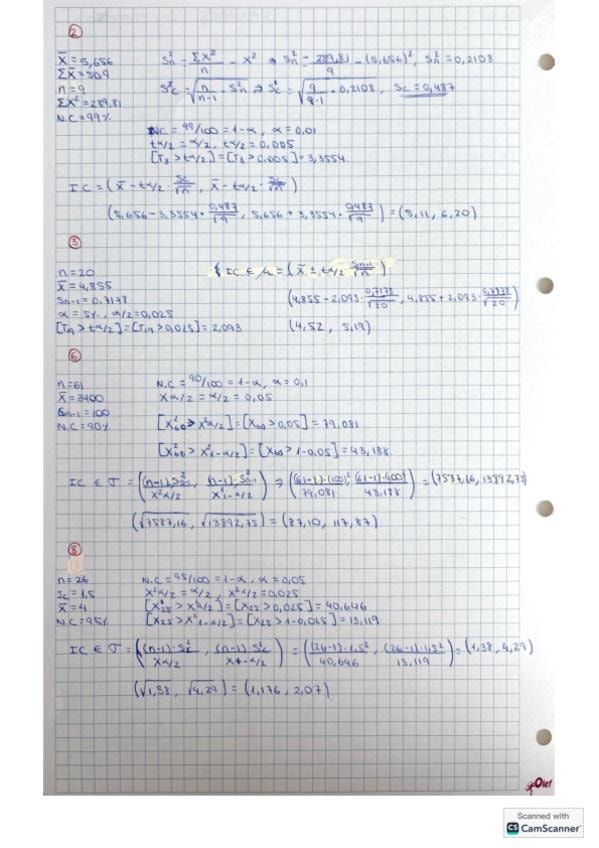 2
x̄ = 5,656
Σx̄ = 50,9
n = 9
Σx² = 289,81
N.C = 99%
Sn² = Σx²/n - x² ⇒ Sn² = 289,81/9 - (5,656)², Sn² = 0,2108
Sc² = √(n/(n-1) · Sn²) ⇒ Sc² = √(9/(9-1) · 0,2108), Sc = 0,487
NC = 99/100 = 1-α, α = 0,01
tα/2 = α/2, tα/2 = 0,005
[T8 > tα/2] = [T8 > 0,005] = 3,3554
IC = (x̄ - tα/2 · Sc/√n, x̄ - tα/2 · Sc/√n)
(5,656 - 3,3554 · 0,487/√9, 5,656 + 3,3554 · 0,487/√9) = (5,11, 6,20)
3
n = 20
x̄ = 4,855
Sn-1 = 0,7173
α = 5%, α/2 = 0,025
[T19 > tα/2] = [T19 > 0,025] = 2,093
IC ∈ μ = (x̄ ± tα/2 · Sn-1/√n)
(4,855 - 2,093 · 0,7173/√20, 4,855 + 2,093 · 0,7173/√20)
(4,52, 5,19)
6
n = 61
x̄ = 8400
Sn-1 = 100
N.C = 90%
N.C = 90/100 = 1-α, α = 0,1
xα/2 = α/2 = 0,05
[X²60 > x²α/2] = [X60 > 0,05] = 79,081
[X²60 > x²1-α/2] = [X60 > 1-0,05] = 43,188
IC ∈ σ = ((n-1)·S²n-1/x²α/2, (n-1)·S²n-1/x²1-α/2) ⇒ ((61-1)·(100)²/79,081, (61-1)·(100)²/43,188) = (7587,16, 13892,73)
(√7587,16, √13892,73) = (87,10, 117,87)
8
n = 26
Sc = 1,5
x̄ = 4
N.C = 95%
N.C = 95/100 = 1-α, α = 0,05
x²α/2 = α/2, x²α/2 = 0,025
[X²25 > x²α/2] = [X25 > 0,025] = 40,646
[X25 > x²1-α/2] = [X25 > 1-0,025] = 13,119
IC ∈ σ = ((n-1)·S²c/xα/2, (n-1)·S²c/x1-α/2) = ((26-1)·1,5²/40,646, (26-1)·1,5²/13,119) = (1,38, 4,29)
(√1,38, √4,29) = (1,176, 2,07)
Scanned with
CS CamScanner